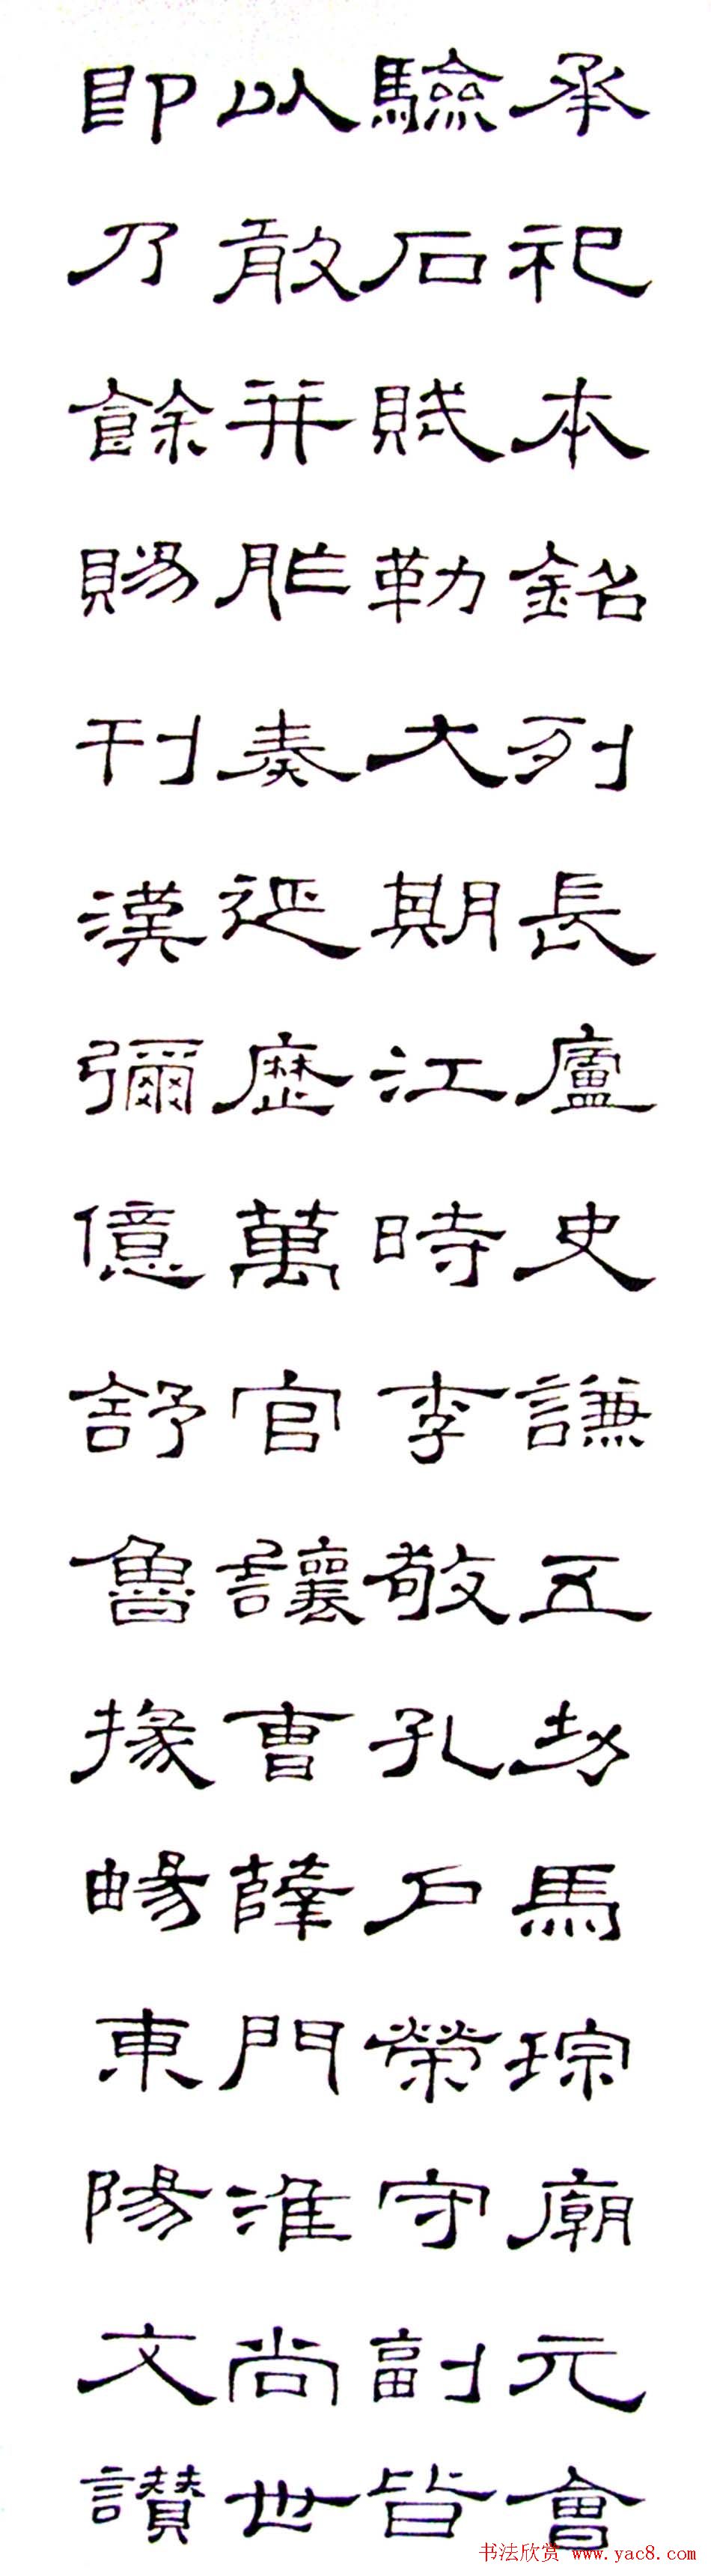 承祀本銘列長廬史謙五馬琮廟元會
驗石賊勒大期江時李敬孔户榮守副皆
以敢并胙奏延歷萬官讓曹薛門淮尚世
即乃餘賜刊漢彌億舒魯掾暢東陽文讚
书法欣赏 www.yac8.com